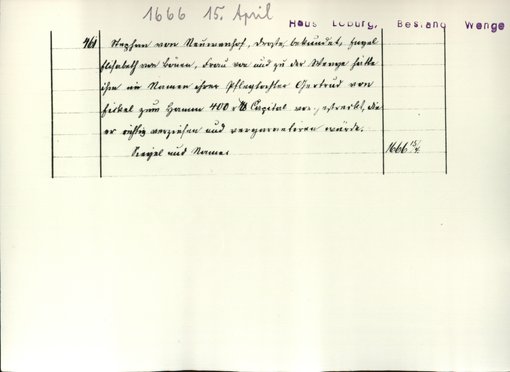 1666 15. April
Haus Loburg, Bestand Wenge
461 Stephan von Neuwenhof, Droste bekundet, Engel
Elisabeth von Bönen, Frau von und zu der Wenge hätte
ihm im Namen ihrer Pflegtochter Gertrud von
zum Hamm 400 Capital die
er richtig verzinsen und würde.
Siegel und Name. 1666 15/4